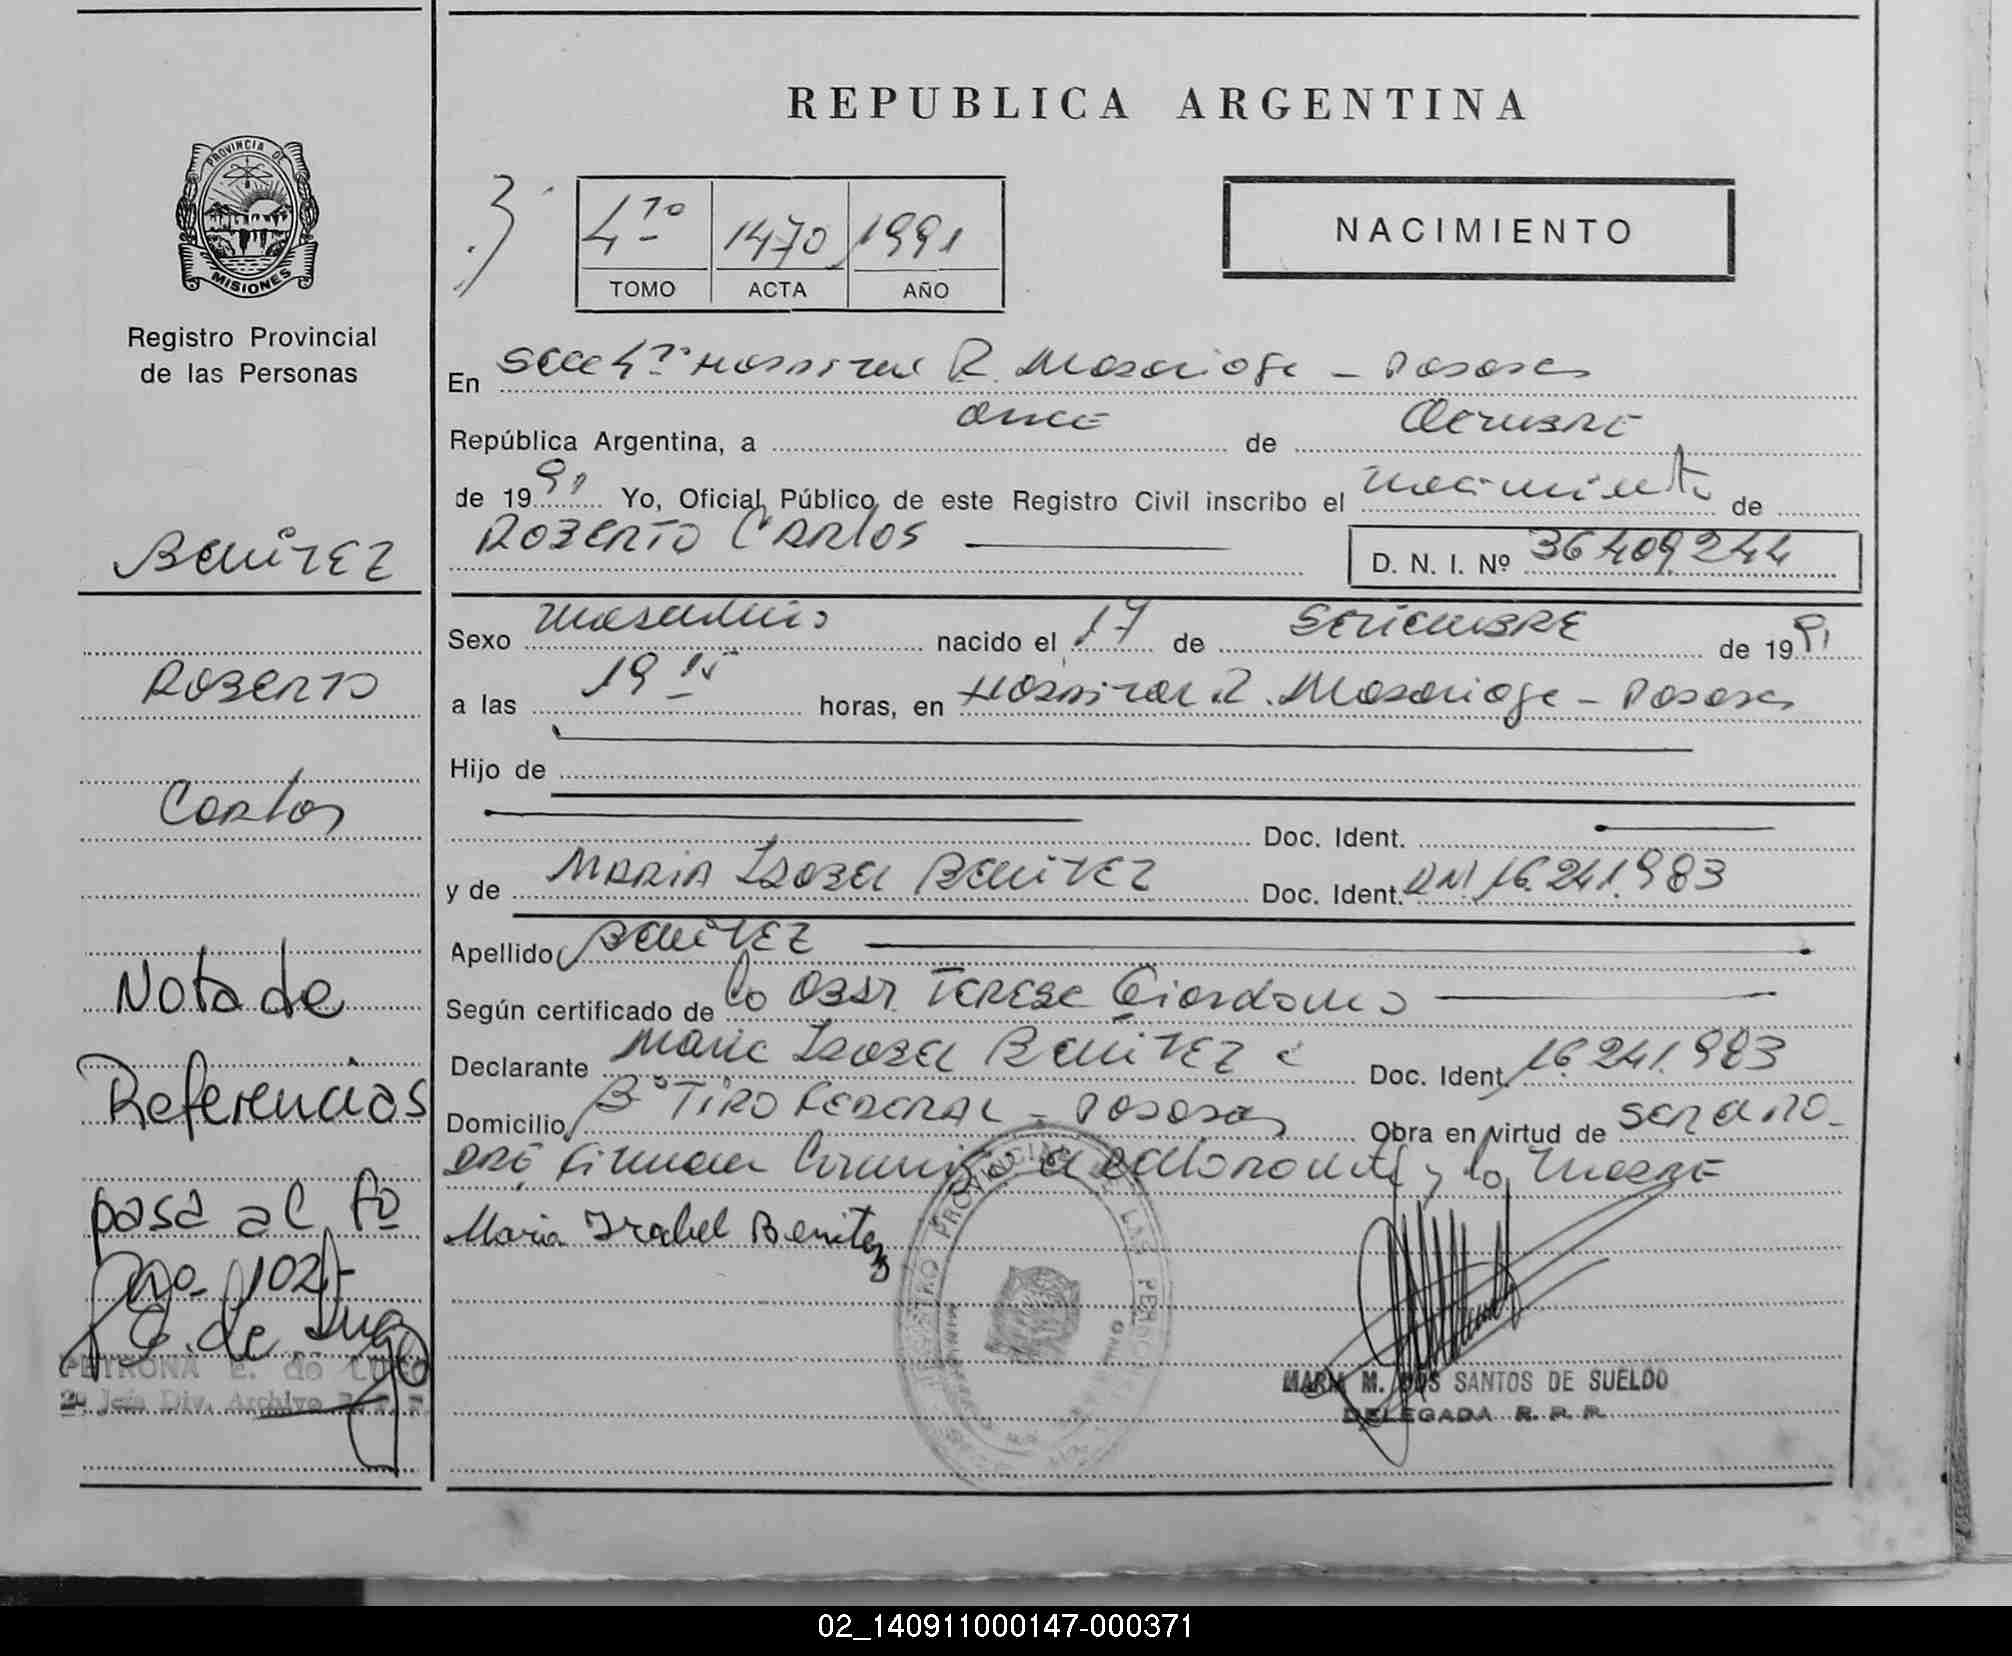 REPUBLICA ARGENTINA
PROVINCIA DE
MISIONES
Registro Provincial
de las Personas
4to 1470 1991
TOMO ACTA AÑO
NACIMIENTO
En Secc 4ta Hospital R. Madariaga - Posadas
República Argentina, a once de Octubre
de 1991 Yo, Oficial Público de este Registro Civil inscribo el nacimiento de
Roberto Carlos
D. N. I. Nº 36409244
Sexo masculino nacido el 17 de Setiembre de 1991
a las 19 15 horas, en Hospital R. Madariaga - Posadas
Hijo de
Doc. Ident.
y de Maria Isabel Benitez Doc. Ident. DNI 16.241.983
Apellido Benitez
Según certificado de la Obst. Teresa Giordano
Declarante Maria Isabel Benitez Doc. Ident. 16.241.983
Domicilio Bº Tiro Federal - Posadas Obra en virtud de ser
firman y la madre
Maria Isabel Benitez
MARIA M. DOS SANTOS DE SUELDO
DELEGADA R. P. P.
Benitez
Roberto
Carlos
Nota de
Referencias
pasa al fo
no. 102
PETRONA E. de LUGO
Jefa Div. Archivo R. P. P.
REGISTRO PROVINCIAL DE LAS PERSONAS
02_140911000147-000371